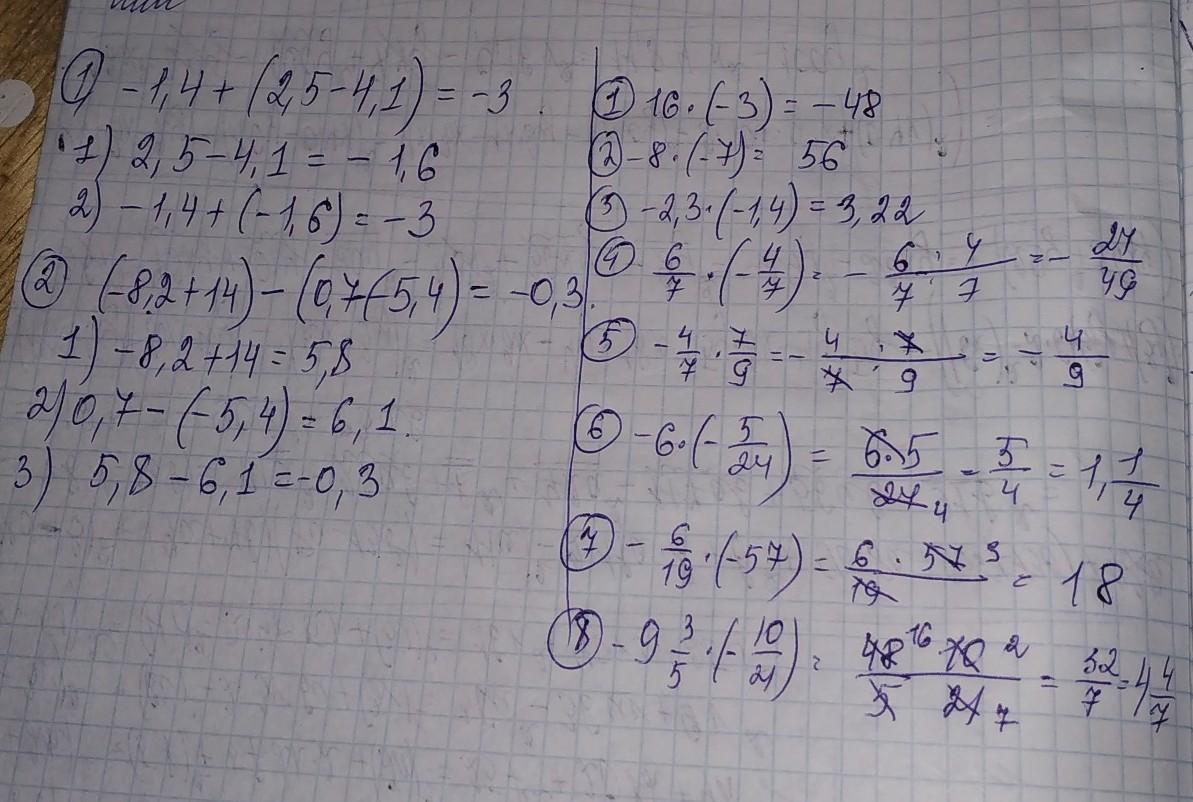 ① -1,4 + (2,5-4,1) = -3
1) 2,5-4,1 = -1,6
2) -1,4+(-1,6) = -3
② (-8,2+14) - (0,7-(-5,4) = -0,3
1) -8,2+14 = 5,8
2) 0,7-(-5,4) = 6,1.
3) 5,8-6,1 = -0,3
① 16·(-3) = -48
② -8·(-7) = 56
③ -2,3·(-1,4) = 3,22
④ 6/7 · (-4/7) = - 6·4/7·7 = - 24/49
⑤ -4/7 · 7/9 = - 4·7/7·9 = - 4/9
⑥ -6·(-5/24) = 6·5/24 4 = 5/4 = 1,1/4
⑦ - 6/19 · (-57) = 6·57 3/19 = 18
⑧ -9 3/5 · (-10/21) = 48 16 · 10 2/5 21 7 = 32/7 = 4 4/7